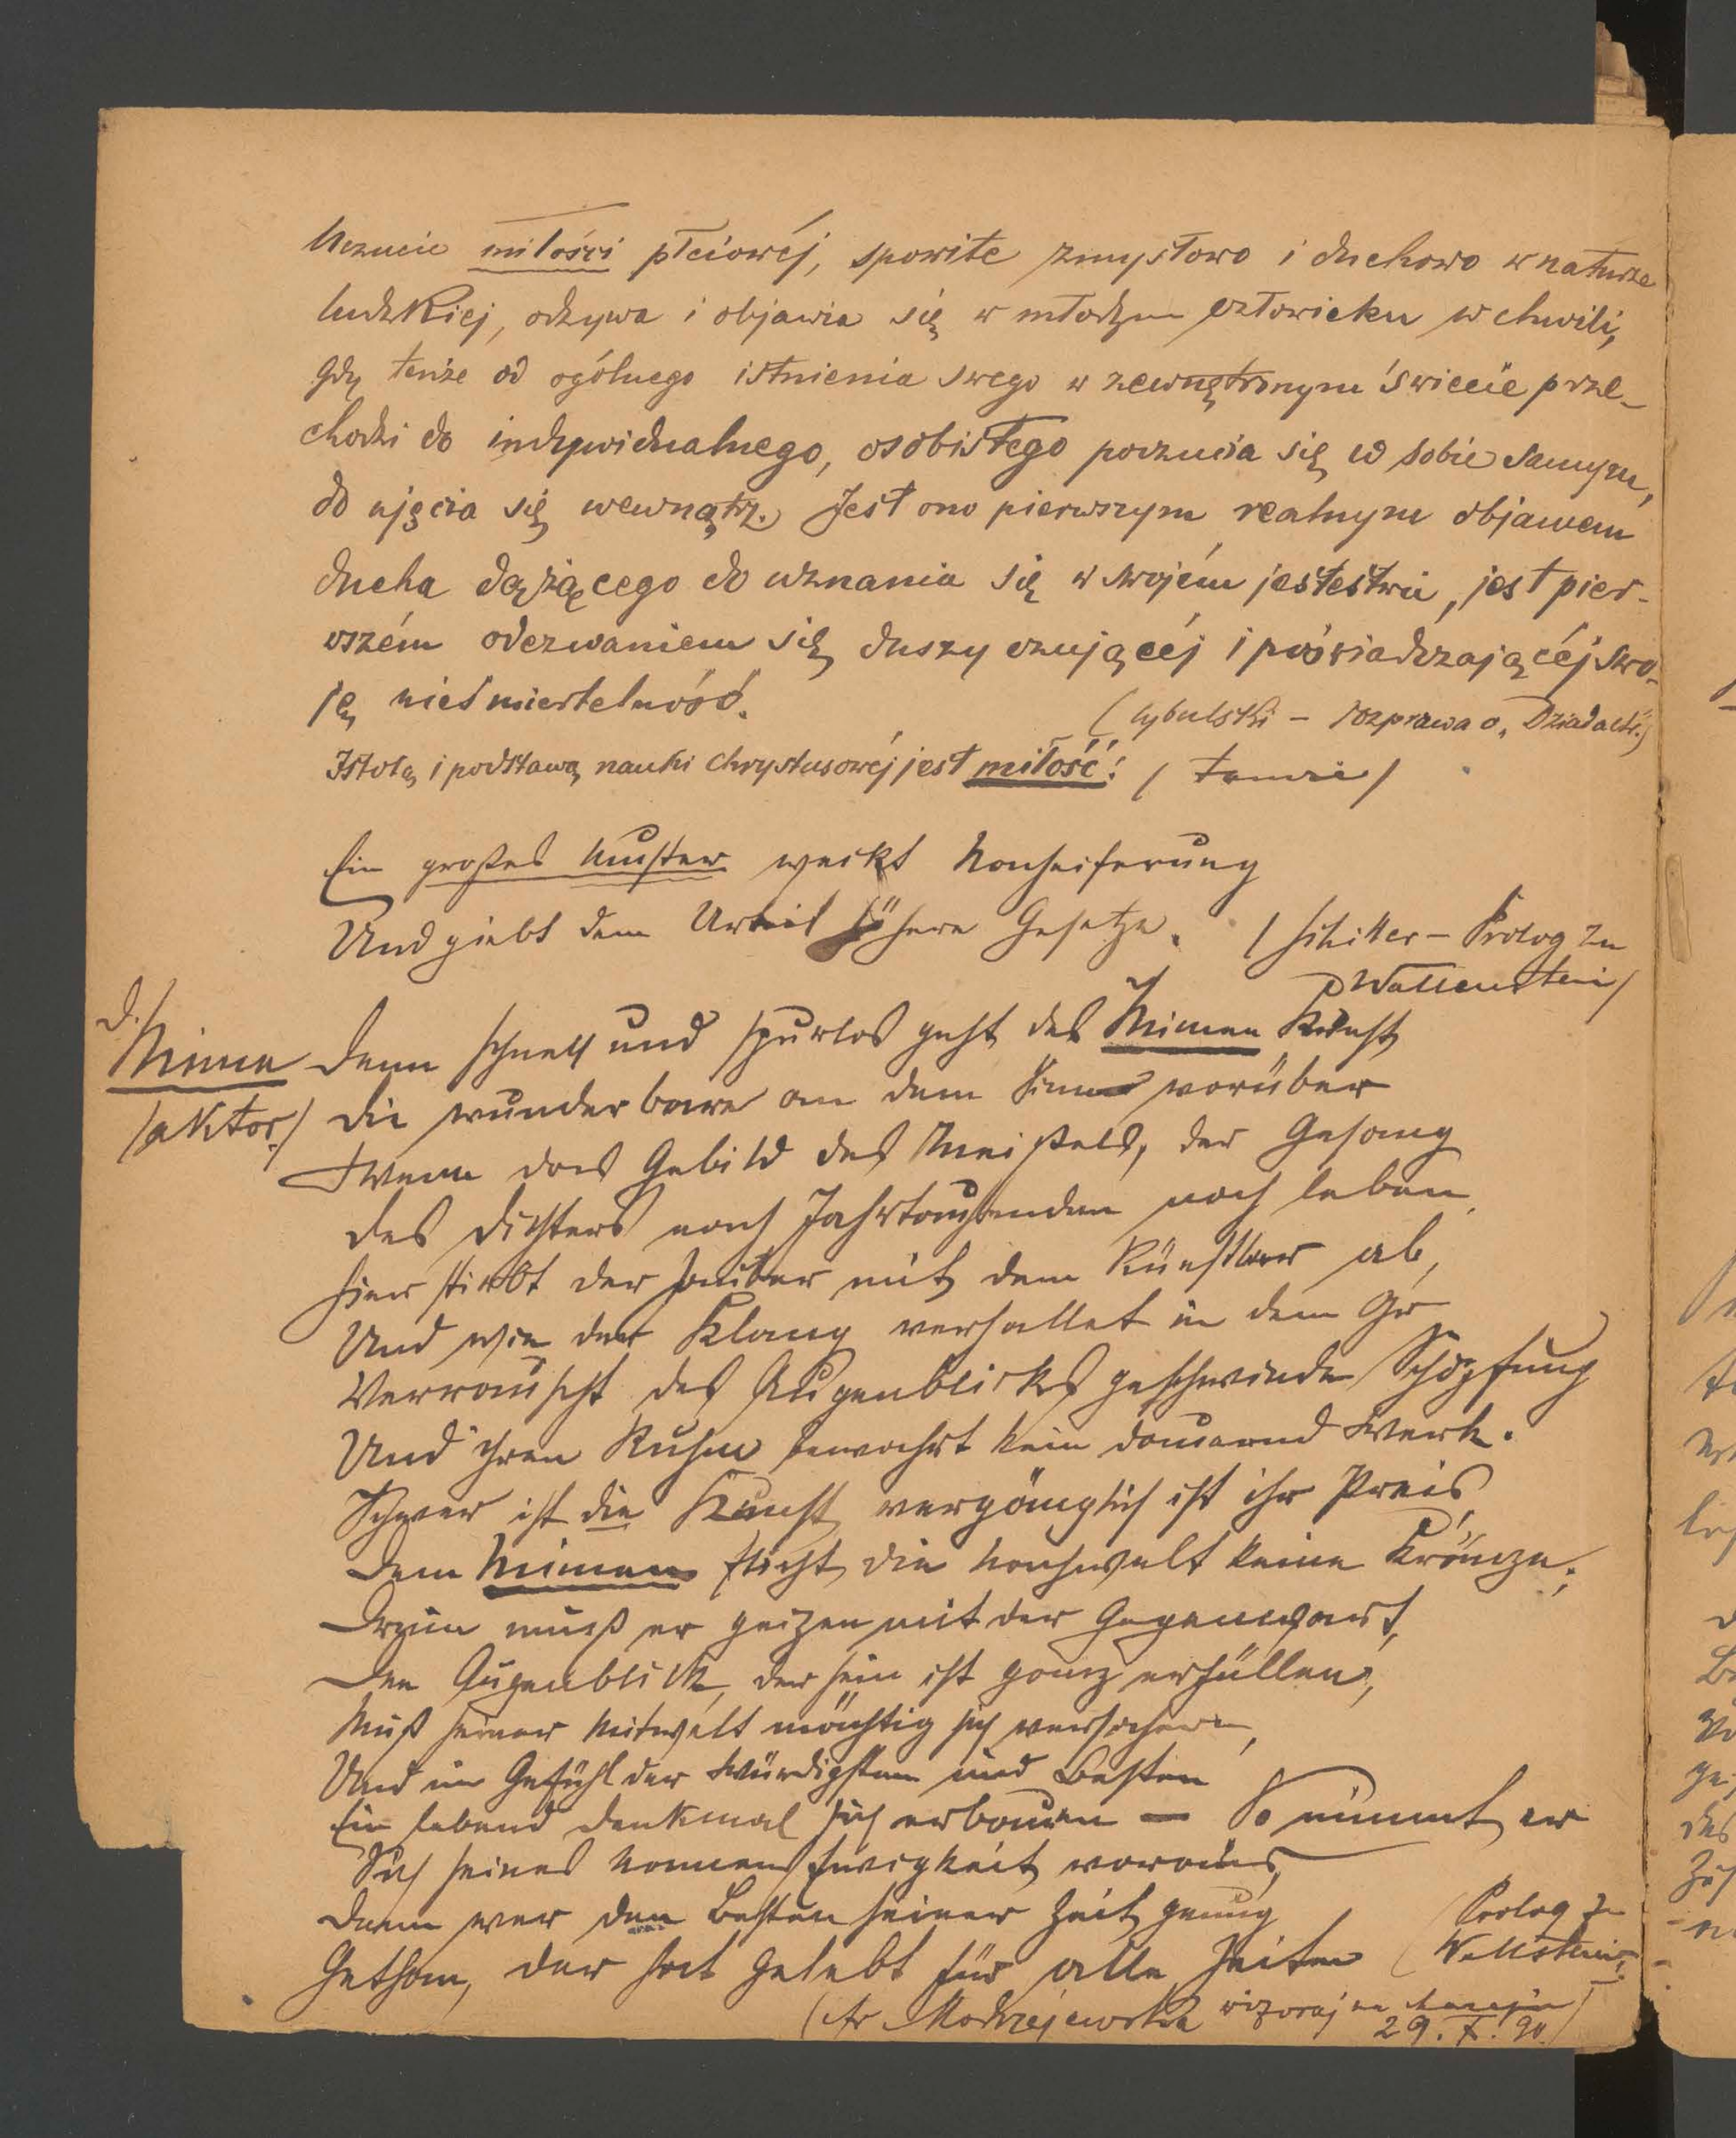 Uczucie miłości płciowéj, spowite zmysłowo i duchowo w naturze
ludzkiej, odzywa i objawia się w młodym człowieku w chwili,
gdy tenże od ogólnego istnienia swego w zewnętrznym świecie prze-
chodzi do indywidualnego, osobistego poczucia się w sobie samym,
do ujęcia się wewnątrz. Jest ono pierwszym realnym objawem
ducha dążącego do uznania się w swojém jestestwie, jest pier-
wszém odezwaniem się duszy czującéj i poświadczającéj swo-
ję nieśmiertelność.
(Cybulski – rozprawa o „Dziadach")
Istotą i podstawą nauki Chrystusowéj jest miłość! / tamże /
Ein großes Muster weckt Nacheiferung
Und giebt dem Urteil höhere Gesetze.
/ Schiller – Prolog zu
Wallenstein /
d.
Mime
/aktor/
Denn schnell und spurlos geht des Mimen Kunst
Die wunderbare an dem Sinn vorüber
Wenn das Gebild des Meißels, der Gesang
Des Dichters nach Jahrtausenden noch leben.
Hier stirbt der Zauber mit dem Künstler ab,
Und wie der Klang verhallet in dem Ohr
Verrauscht des Augenblicks geschwinde Schöpfung
Und ihren Ruhm bewahrt kein dauernd Werk.
Schwer ist die Kunst vergänglich ist ihr Preis,
Dem Mimen flicht die Nachwelt keine Kränze;
Drum muß er geizen mit der Gegenwart,
Den Augenblick, der sein ist ganz erfüllen,
Muß seiner Mitwelt mächtig sich versichern,
Und im Gefühl der Würdigsten und Besten
Ein lebend Denkmal sich erbauen – So nimmt er
Sich seines Namens Ewigkeit voraus,
Denn wer den Besten seiner Zeit genug
Gethan, der hat gelebt für alle Zeiten
(Prolog zu
Wallstein
Modrzejewska wczoraj na
29. X. 90.)